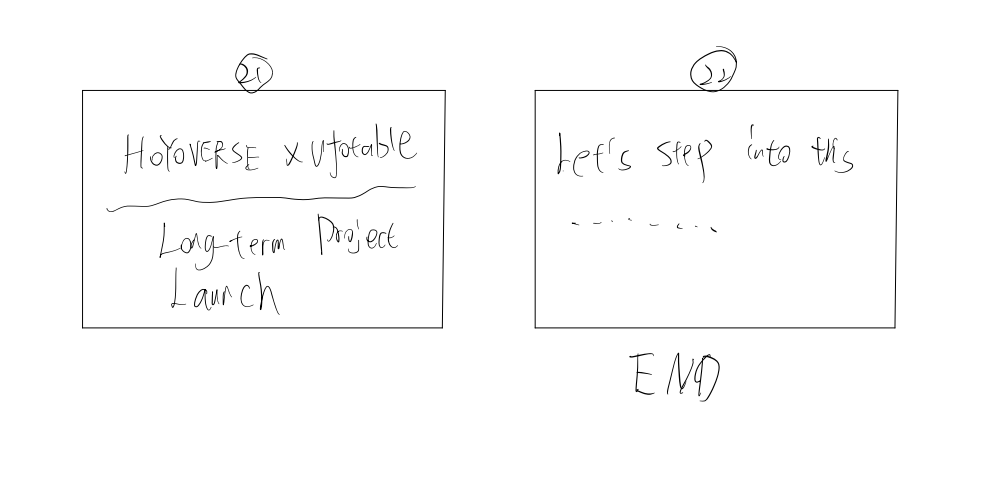 21
HOYOVERSE x ufotable
Long-term Project
Launch
22
Let's step into this
.........
END